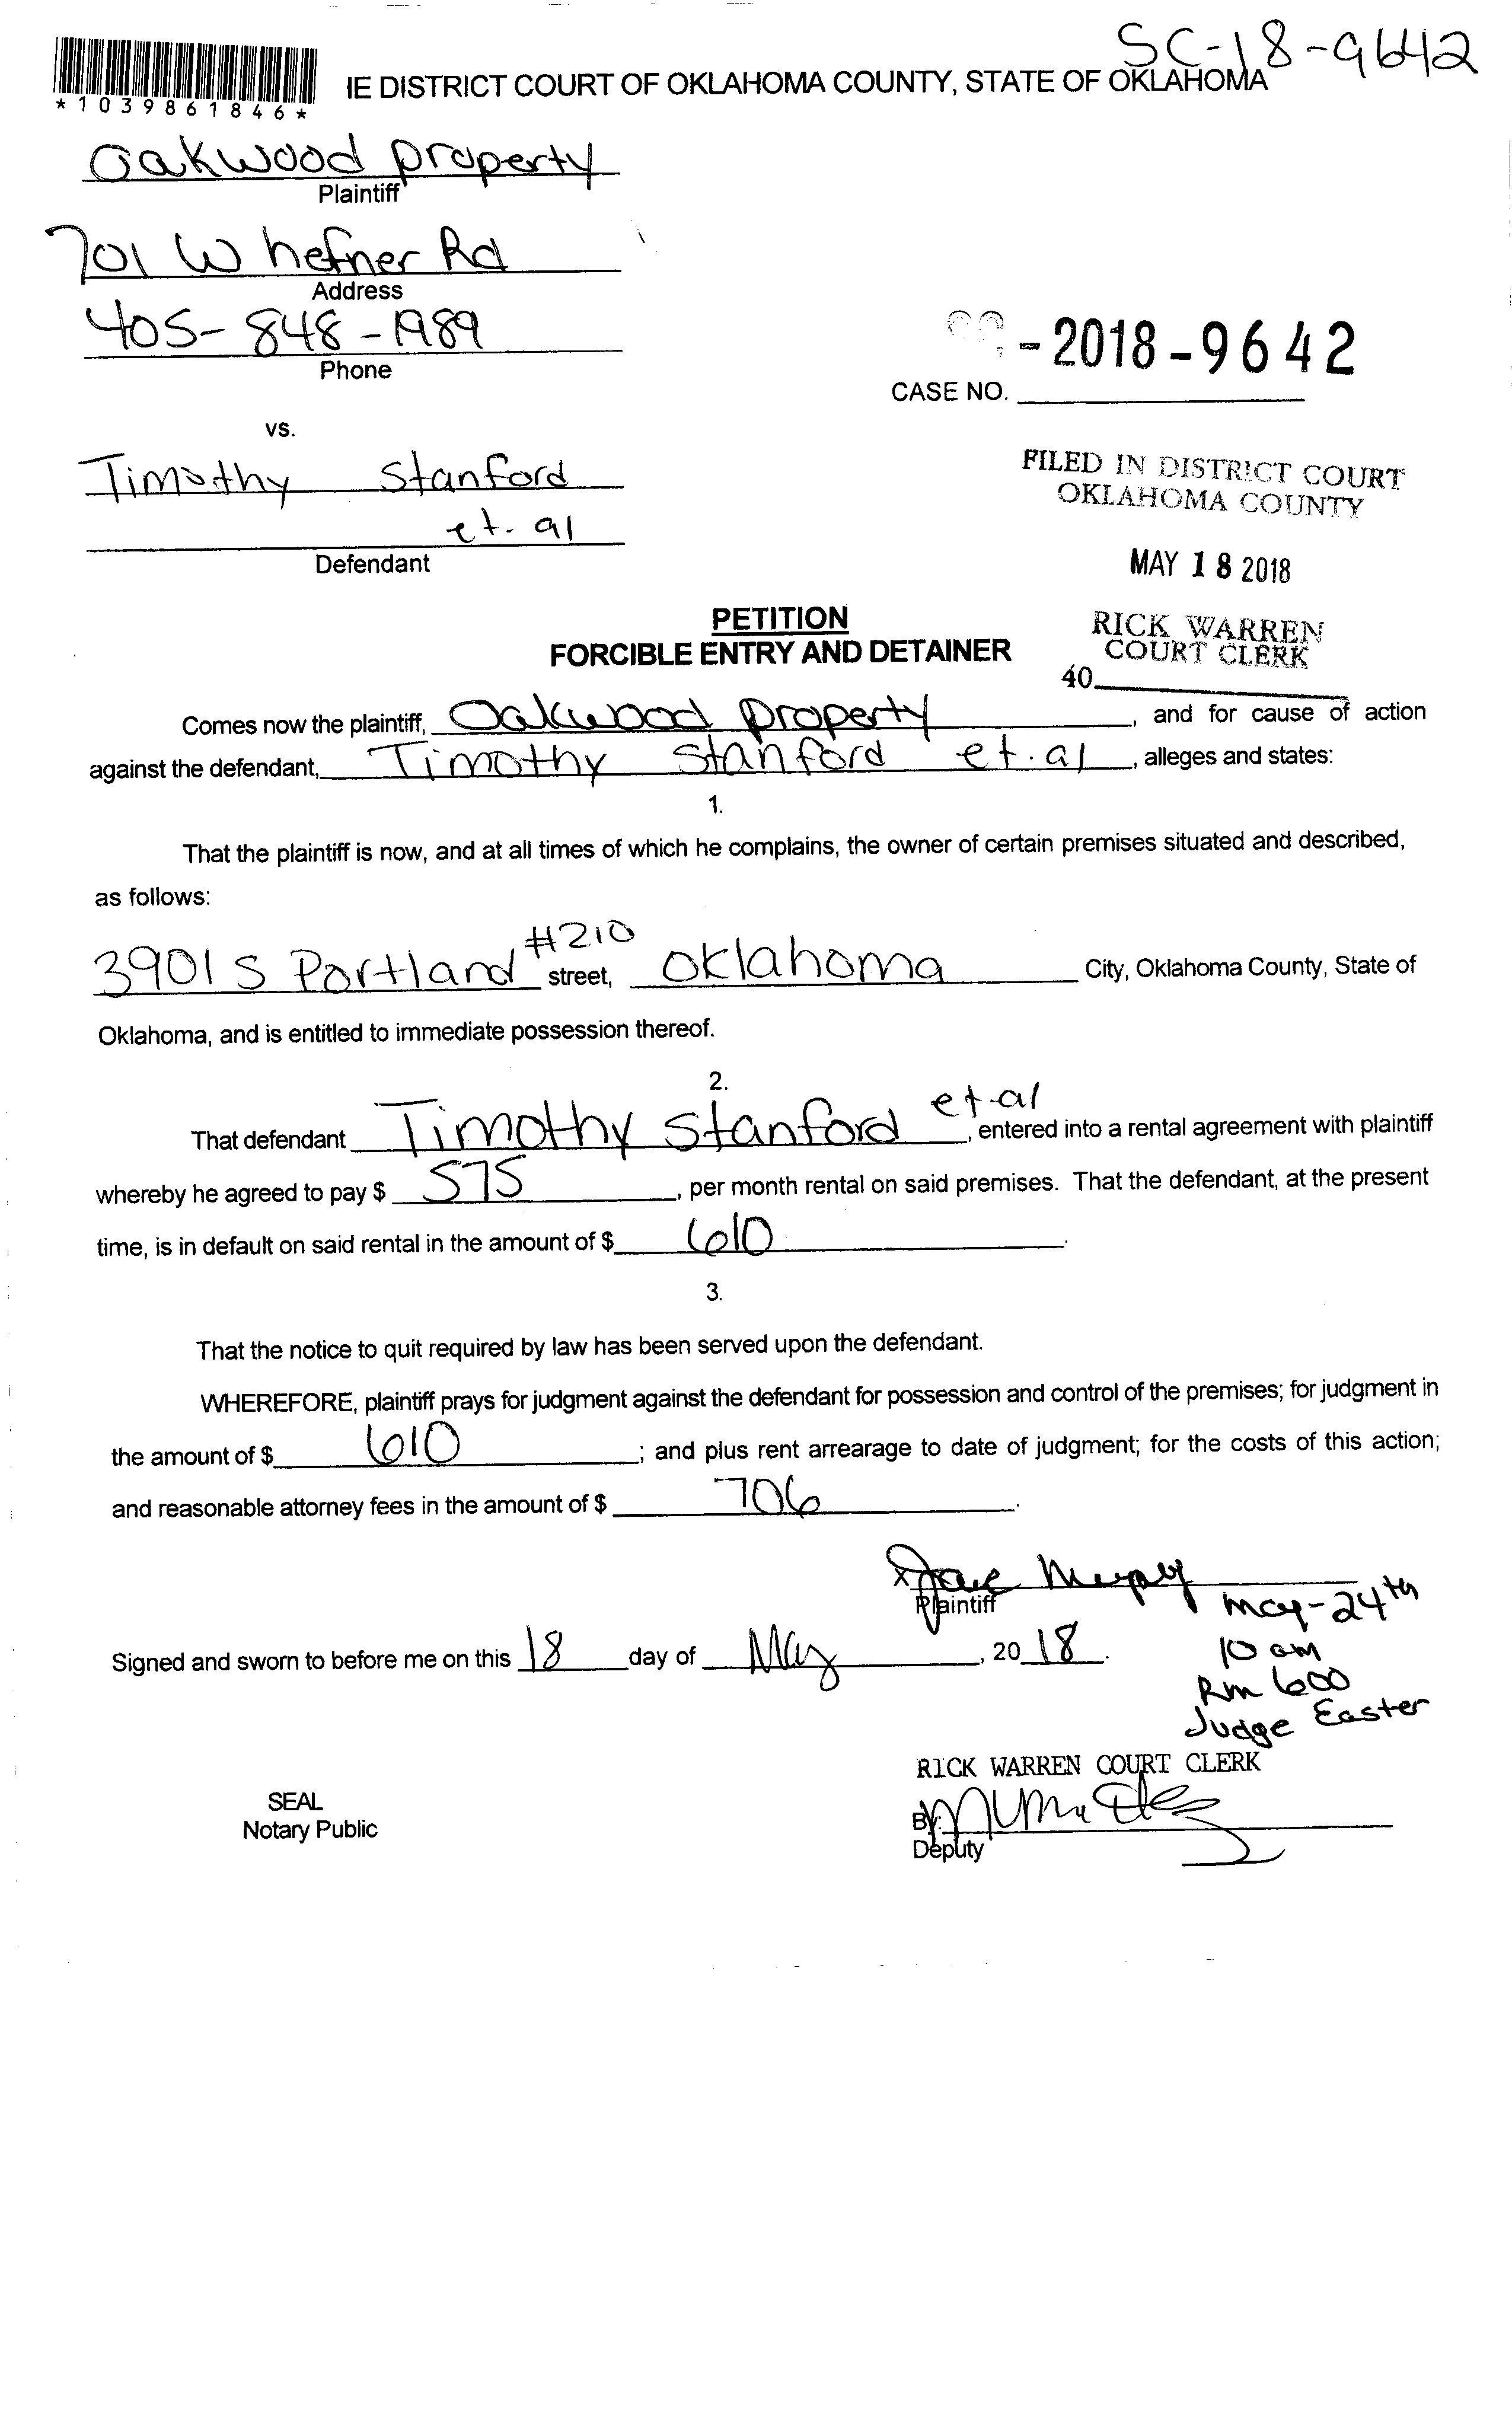 SC-18-9642
IE DISTRICT COURT OF OKLAHOMA COUNTY, STATE OF OKLAHOMA
*1039861846*
Oakwood property
Plaintiff
701 W hefner Rd
Address
405-848-1989
Phone
-2018-9642
CASE NO.
vs.
Timothy Stanford
et. al
Defendant
FILED IN DISTRICT COURT
OKLAHOMA COUNTY
MAY 18 2018
RICK WARREN
COURT CLERK
40
PETITION
FORCIBLE ENTRY AND DETAINER
Comes now the plaintiff, Oakwood property, and for cause of action
against the defendant, Timothy Stanford et. al, alleges and states:
1.
That the plaintiff is now, and at all times of which he complains, the owner of certain premises situated and described,
as follows:
3901 S Portland #210 street, Oklahoma City, Oklahoma County, State of
Oklahoma, and is entitled to immediate possession thereof.
2.
That defendant Timothy Stanford et-al, entered into a rental agreement with plaintiff
whereby he agreed to pay $ 575, per month rental on said premises. That the defendant, at the present
time, is in default on said rental in the amount of $ 610.
3.
That the notice to quit required by law has been served upon the defendant.
WHEREFORE, plaintiff prays for judgment against the defendant for possession and control of the premises; for judgment in
the amount of $ 610; and plus rent arrearage to date of judgment; for the costs of this action;
and reasonable attorney fees in the amount of $ 706.
x
Plaintiff
May-24th
10 am
Rm 600
Judge Easter
Signed and sworn to before me on this 18 day of May, 2018.
RICK WARREN COURT CLERK
By:
Deputy
SEAL
Notary Public